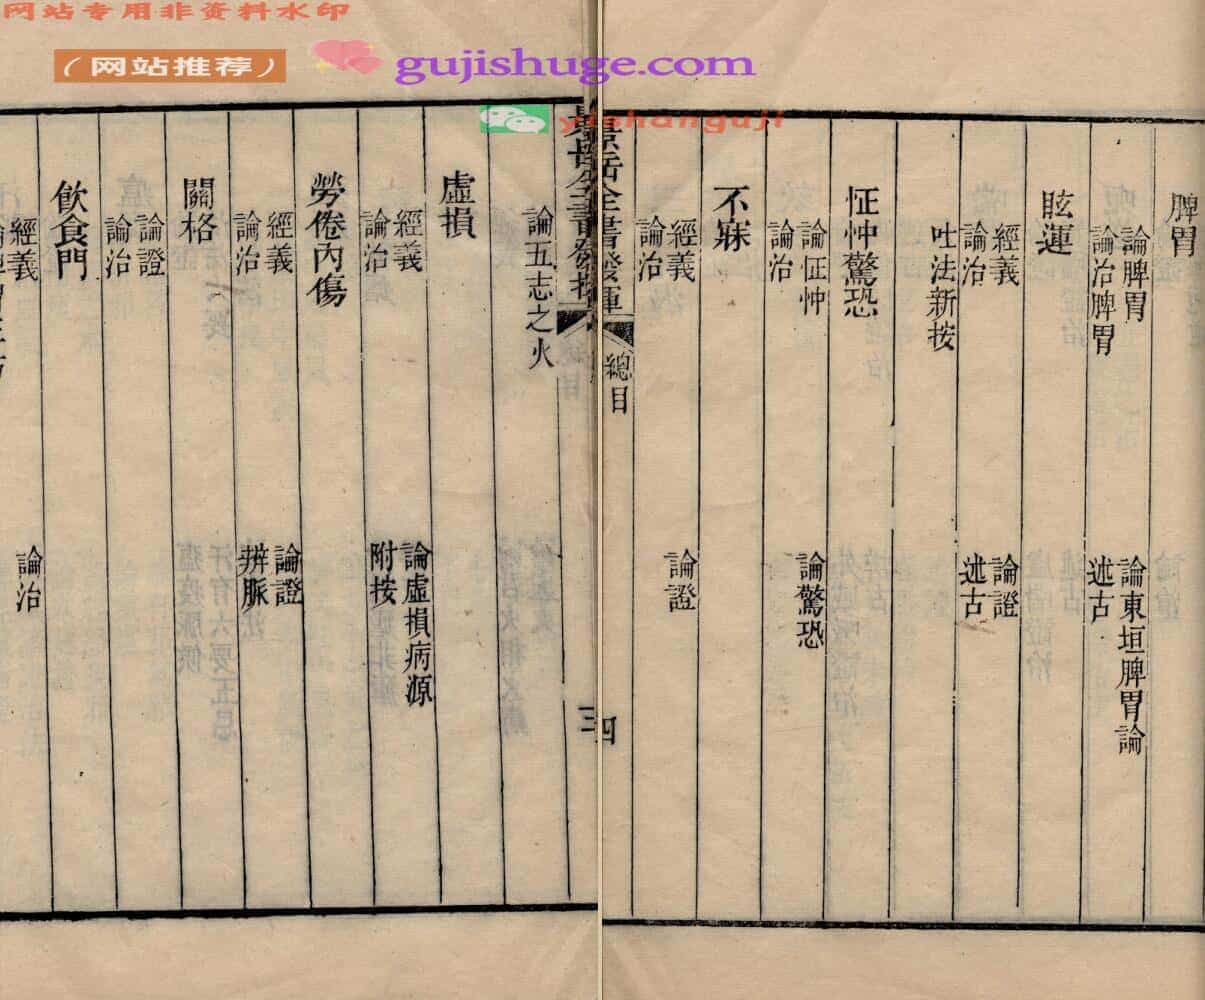 网站专用非资料水印
（网站推荐）
gujishuge.com
yishanguji
脾胃
論脾胃 論東垣脾胃論
論治脾胃 述古
眩運
經義 論證
論治 述古
吐法新按
怔忡驚恐
論怔忡 論驚恐
論治
不寐
經義 論證
論治
景岳全書發揮 總目 四
景岳全書發揮 三
論五志之火
虛損
經義 論虛損病源
論治 附按
勞倦內傷
經義 論證
論治 辨脈
關格
論證
論治
飲食門
經義 論治